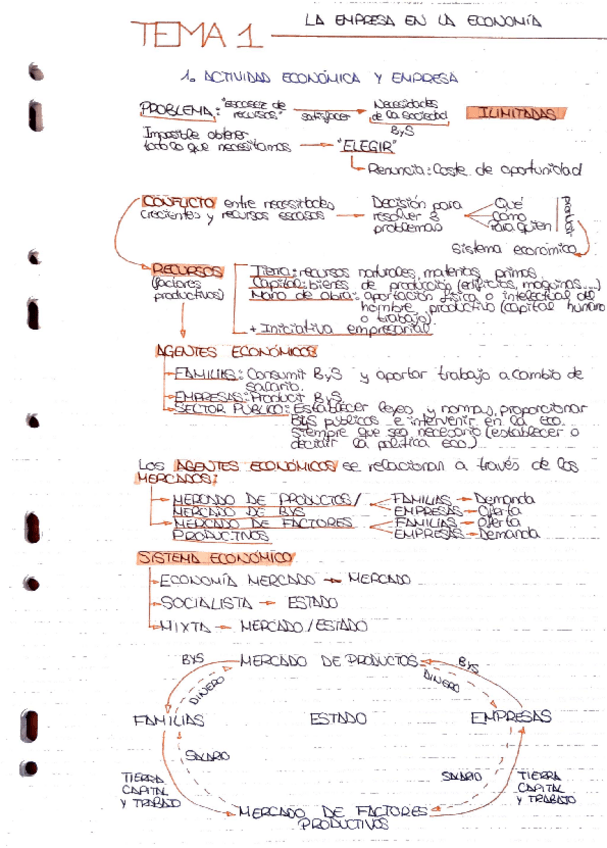 LA EMPRESA EN LA ECONOMÍA
TEMA 1
1. ACTIVIDAD ECONÓMICA Y EMPRESA
PROBLEMA: "escasez de recursos" satisfacer Necesidades de la sociedad ByS ILIMITADAS
Imposible obtener
todo lo que necesitamos "ELEGIR"
Renuncia: Coste de oportunidad
CONFLICTO entre necesidades Decisión para Qué
crecientes y recursos escasos resolver 3 Cómo
problemas Para quien
Sistema económico
RECURSOS Tierra: recursos naturales, materias primas
(factores Capital: bienes de producción (edificios, maquinas...)
productivos) Mano de obra: aportación física o intelectual del
hombre productivo (capital humano
o trabajo)
+ Iniciativa empresarial
AGENTES ECONÓMICOS
FAMILIAS: Consumir ByS y aportar trabajo a cambio de
salario.
EMPRESAS: Producir ByS
SECTOR PÚBLICO: Establecer leyes y normas, proporcionar
BYS públicos e intervenir en la eco.
siempre que sea necesario (establecer o
decidir la política eco.)
Los AGENTES ECONÓMICOS se relacionan a través de los
MERCADOS:
MERCADO DE PRODUCTOS/ FAMILIAS Demanda
MERCADO DE BYS EMPRESAS Oferta
MERCADO DE FACTORES FAMILIAS Oferta
PRODUCTIVOS EMPRESAS Demanda
SISTEMA ECONÓMICO
ECONOMÍA MERCADO MERCADO
SOCIALISTA ESTADO
MIXTA MERCADO/ESTADO
BYS MERCADO DE PRODUCTOS BYS
DINERO DINERO
FAMILIAS ESTADO EMPRESAS
SALARIO SALARIO
TIERRA TIERRA
CAPITAL CAPITAL
Y TRABAJO Y TRABAJO
MERCADO DE FACTORES
PRODUCTIVOS